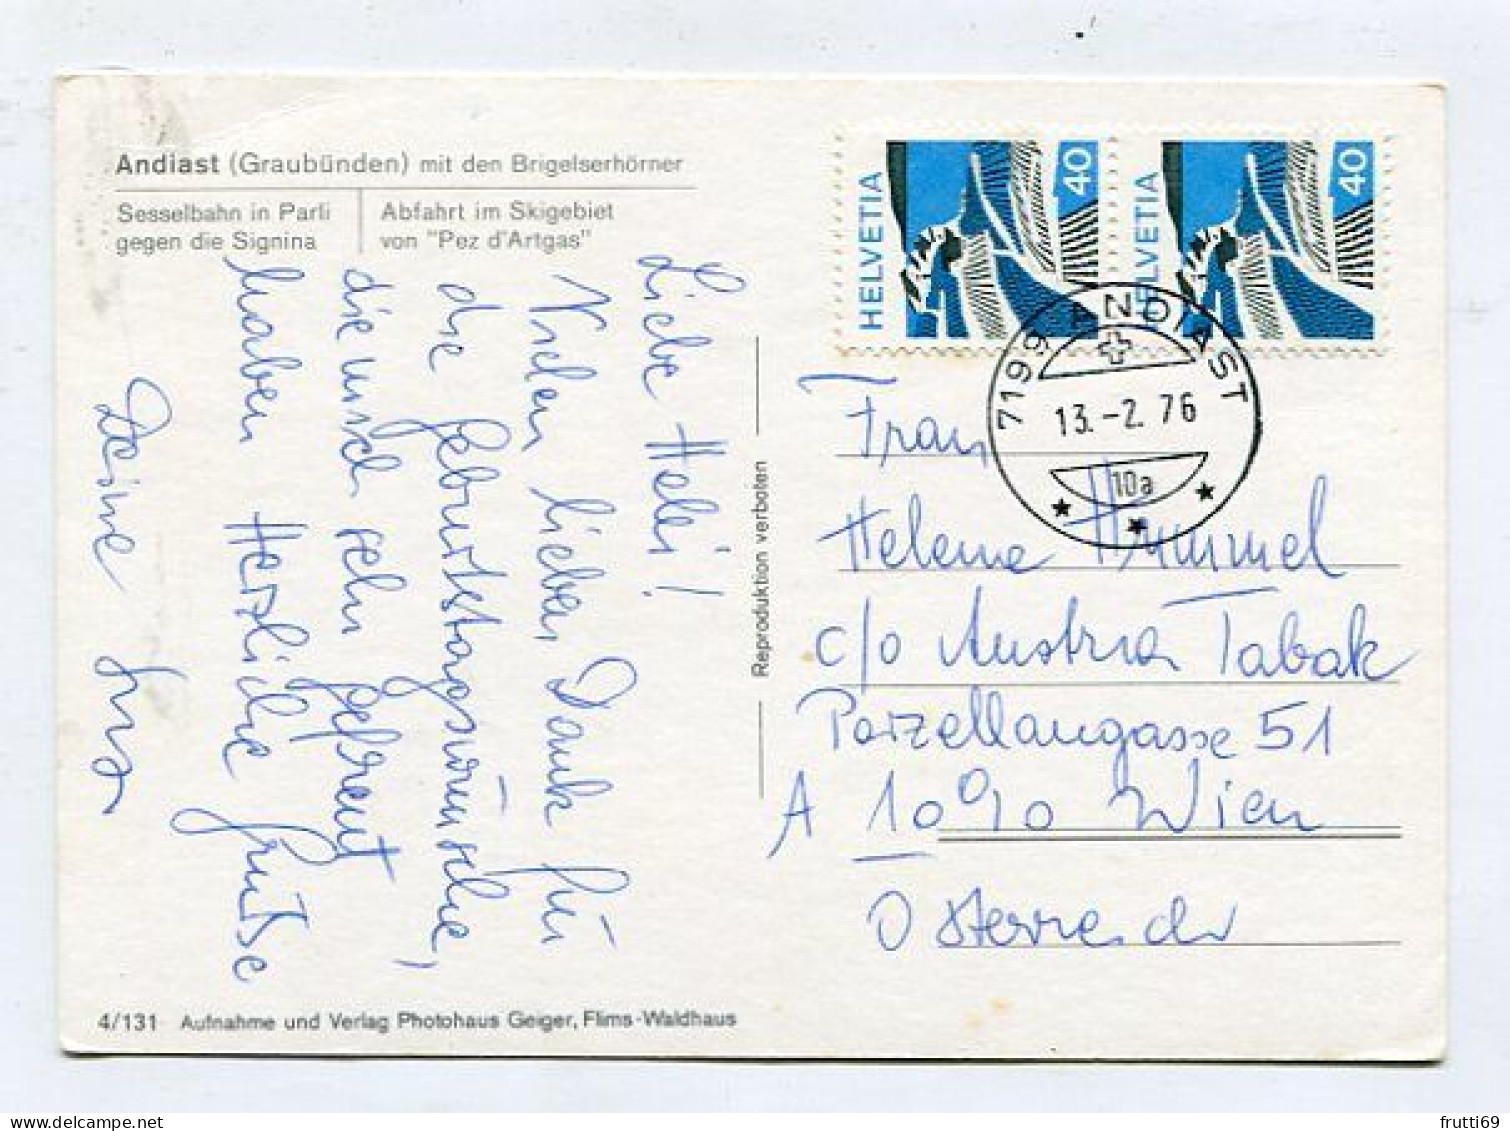 Andiast (Graubünden) mit den Brigelserhörner
Sesselbahn in Parli
gegen die Signina
Abfahrt im Skigebiet
von "Pez d'Artgas"
Liebe Heli!
Vielen lieben Dank für
die Geburtstagswünsche,
die mich sehr gefreut
haben. Herzliche Grüße
Deine
HELVETIA 40
HELVETIA 40
7199 ANDIAST
13.-2.76
10a
Frau
Helene Himmel
c/o Austria Tabak
Porzellangasse 51
A 1090 Wien
Österreich
Reproduktion verboten
4/131 Aufnahme und Verlag Photohaus Geiger, Flims-Waldhaus
frutti69